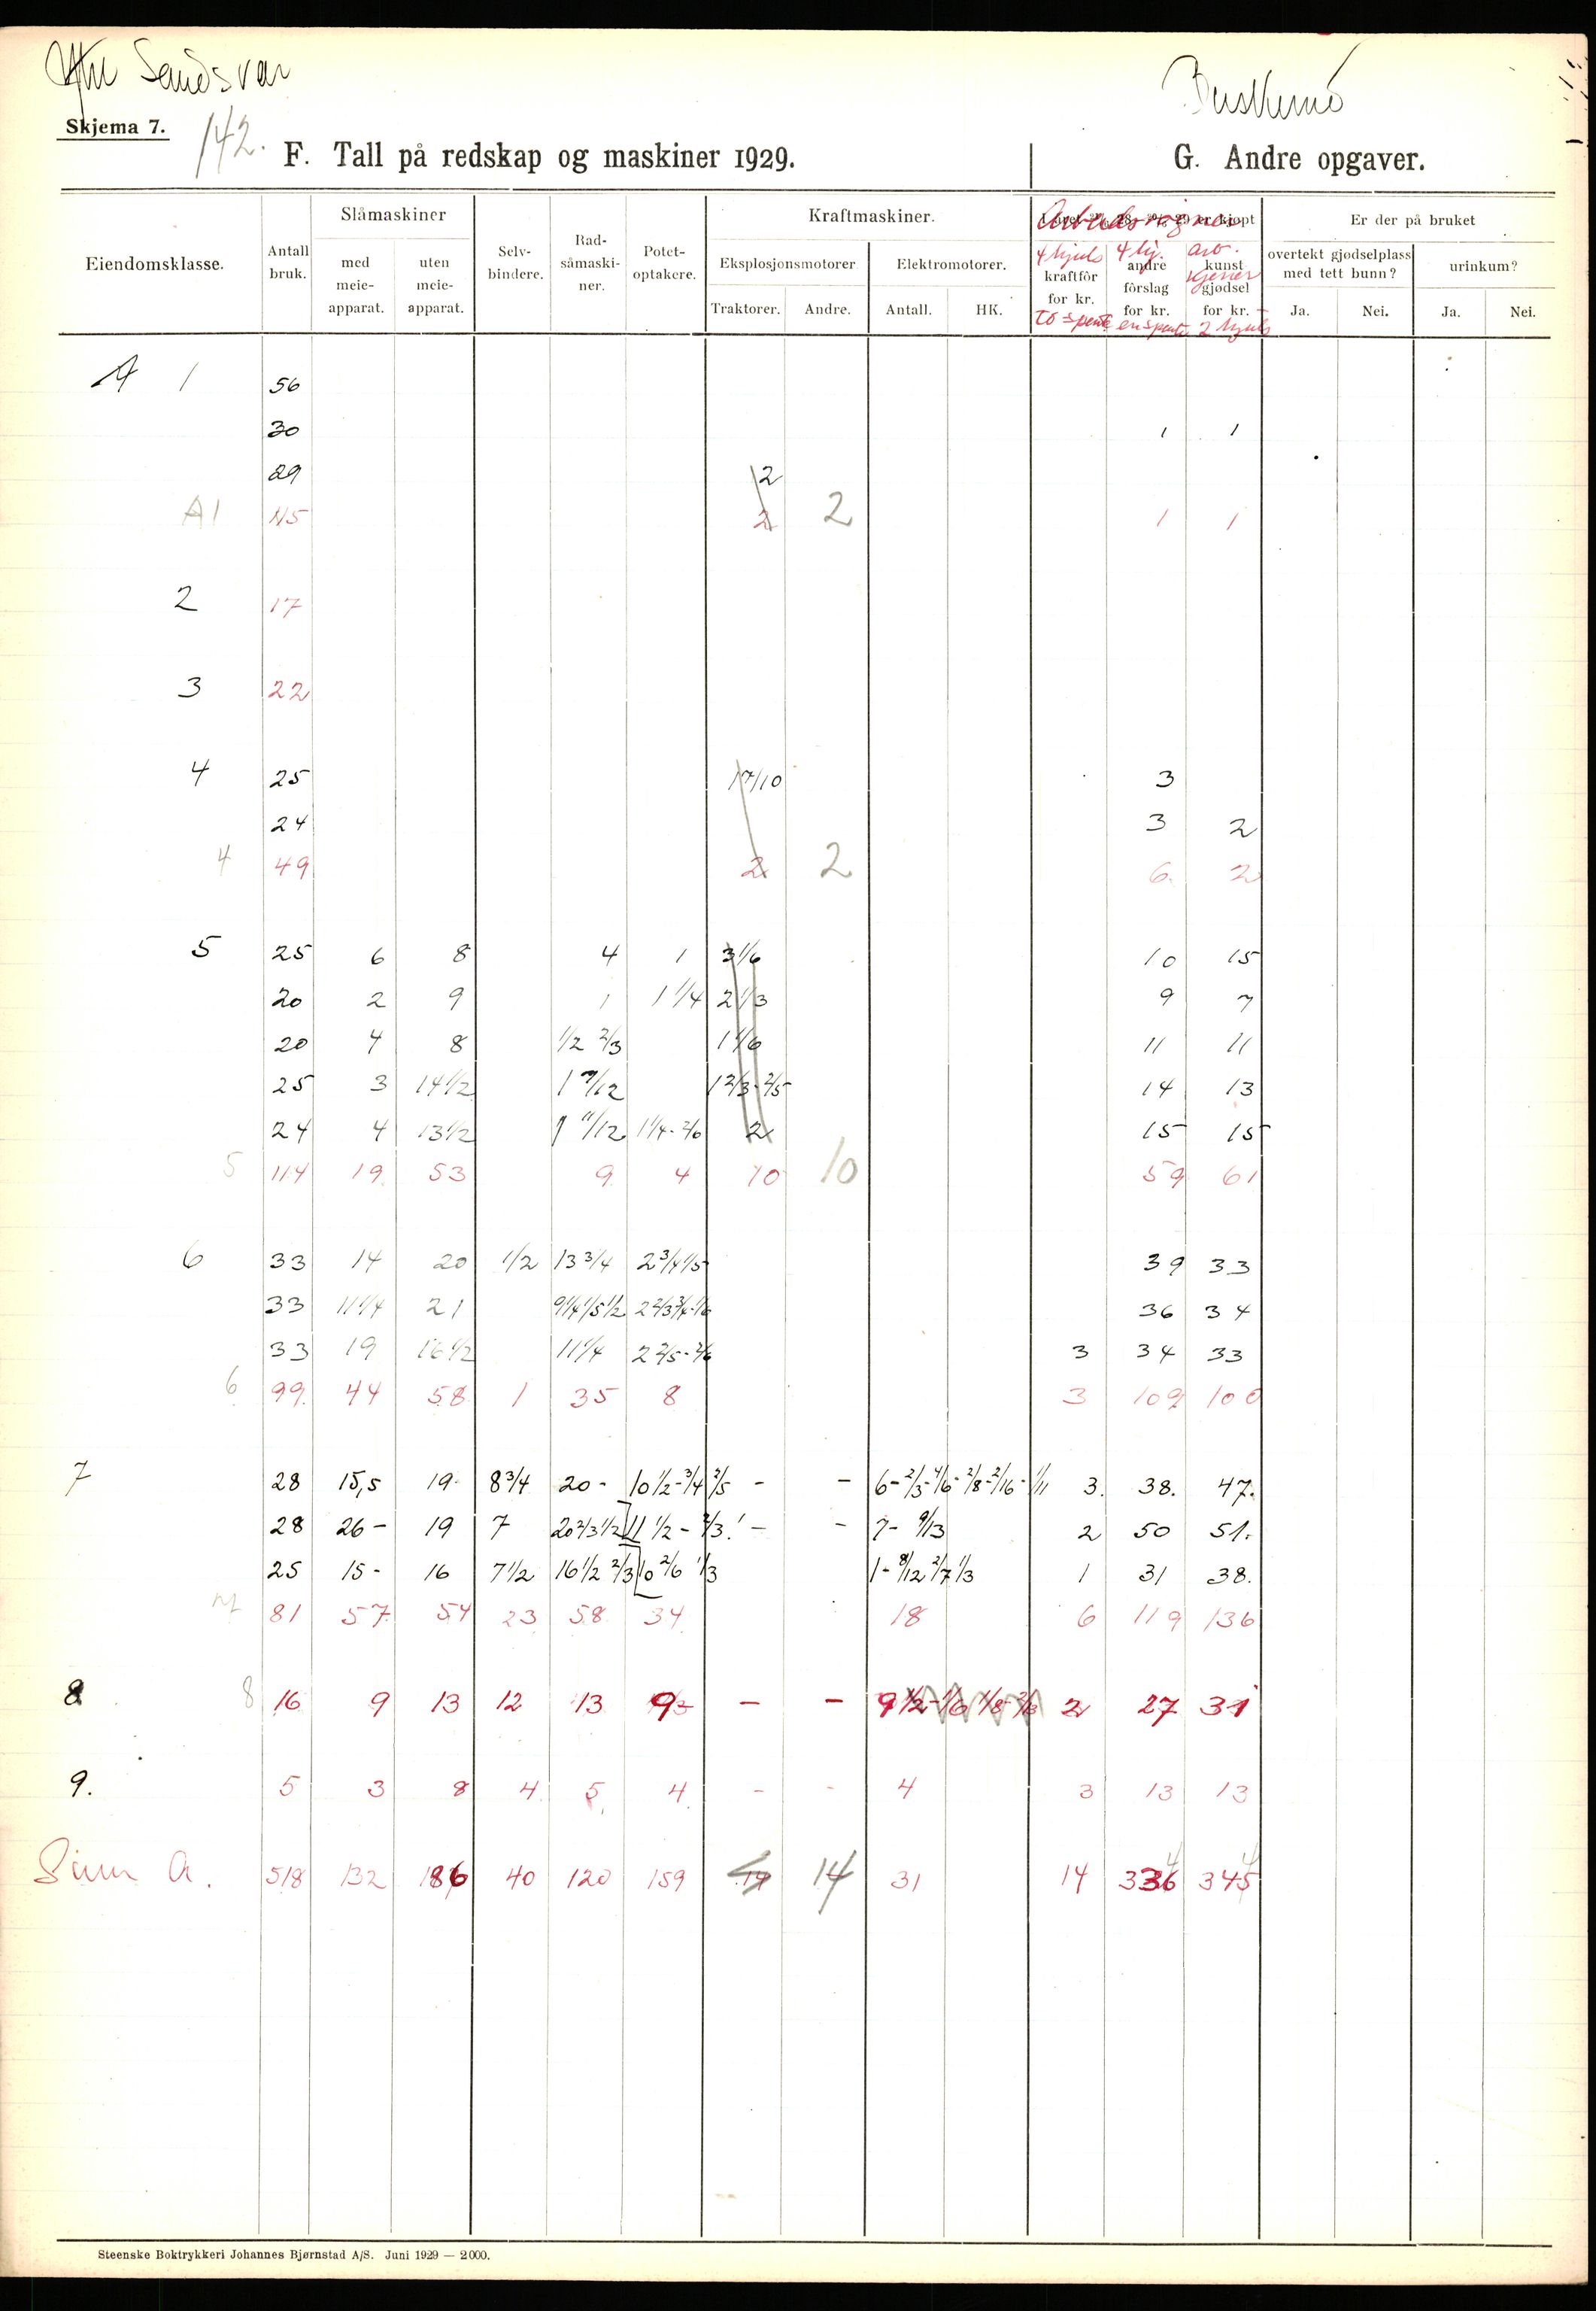 Ytre Sandsvær
Buskerud
Skjema 7.
142.
F. Tall på redskap og maskiner 1929.
G. Andre opgaver.
Eiendomsklasse.
Antall bruk.
Slåmaskiner
med meie-apparat.
uten meie-apparat.
Selv-bindere.
Rad-såmaski-ner.
Potet-optakere.
Kraftmaskiner.
Eksplosjonsmotorer
Traktorer.
Andre.
Elektromotorer.
Antall.
HK.
Arbeidsvogner
er kjøpt
4 hjuls
kraftfôr
for kr.
to spente
4 hj.
andre
fôrslag
for kr.
enspente
arb.
kunst
kjerrer
gjødsel
for kr.
2 hjuls
Er der på bruket
overtekt gjødselplass med tett bunn?
Ja.
Nei.
urinkum?
Ja.
Nei.
A 1 56
30 1 1
29 2
A1 115 2 2 1 1
2 17
3 22
4 25 17/10 3
24 3 2
4 49 2 2 6 2
5 25 6 8 4 1 3 1/6 10 15
20 2 9 1 1 1/4 2 1/3 9 7
20 4 8 1/2 2/3 1 1/6 11 11
25 3 14 1/2 1 7/12 1 2/3 - 2/5 14 13
24 4 13 1/2 1 11/12 1 1/4 - 2/6 2 15 15
5 114 19 53 9 4 10 10 59 61
6 33 14 20 1/2 13 3/4 2 3/4 1/5 39 33
33 11 1/4 21 9 1/4 1/5 1/2 2 2/3 3/4 - 1/6 36 34
33 19 16 1/2 11 1/4 2 2/5 - 2/6 3 34 33
6 99. 44 58 1 35 8 3 109 100
7 28 15,5 19 - 8 3/4 20 - 10 1/2 - 3/4 2/5 - - 6 - 2/3 - 4/6 - 2/8 - 2/16 - 1/11 3. 38. 47.
28 26 - 19 7 20 2/3 1/2 11 1/2 - 2/3 ! - - 7 - 9/13 2 50 51.
25 15 - 16 7 1/2 16 1/2 2/3 10 2/6 1/3 1 - 8/12 2/7 1/3 1 31 38.
7 81 57 54 23 58 34 18 6 119 136
8 8 16 9 13 12 13 9 - - 9 1/2 - 1/6 1/8 - 2/6 2 27 31
9. 5 3 8 4 5 4 - - 4 3 13 13
Sum A. 518 132 186 40 120 159 14 14 31 14 336 4 345 4
Steenske Boktrykkeri Johannes Bjørnstad A/S. Juni 1929 — 2000.